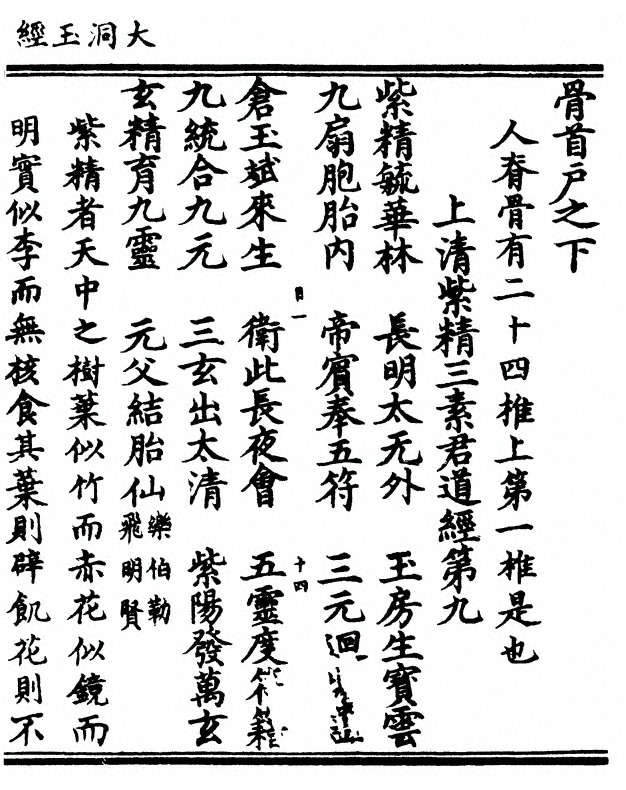 大洞玉經
骨首戶之下
人脊骨有二十四椎上第一椎是也
上清紫精三素君道經第九
紫精毓華林　長明太无外　玉房生寳雲
九扇胞胎內　帝賓奉五符　三元迴
倉玉斌來生　衛此長夜會　五靈度
九統合九元　三玄出太清　紫陽發萬玄
玄精育九靈　元父結胎仙樂伯勒飛明賢
紫精者天中之樹葉似竹而赤花似鏡而
明實似李而無核食其葉則辟飢花則不